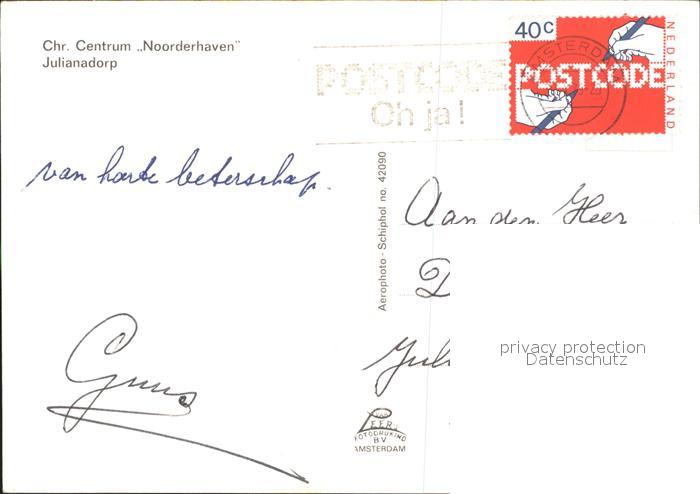 Chr. Centrum „Noorderhaven"
Julianadorp
40c
NEDERLAND
POSTCODE
POSTCODE
Oh ja!
van harte beterschap.
Aerophoto - Schiphol no. 42090
Aan den Heer
D
Juli
privacy protection
Datenschutz
FOTODRUKIND
B.V
AMSTERDAM